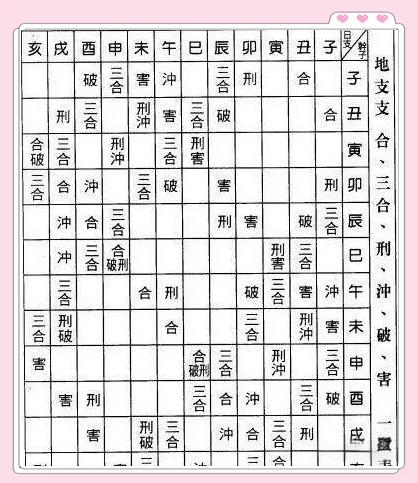 地支支 合、三合、刑、沖、破、害 一覽
亥 戌 酉 申 未 午 巳 辰 卯 寅 丑 子 日支
破 三合 害 沖 三合 刑 合 子
刑 三合 刑沖 害 三合 破 合 丑
合破 三合 刑沖 三合 刑害 寅
三合 合 沖 三合 破 害 刑 卯
沖 合 三合 刑 害 破 三合 辰
冲 三合 合破刑 刑害 三合 巳
三合 合 刑 破 三合 害 沖 午
三合 刑破 合 三合 刑沖 害 未
害 合破刑 三合 刑沖 三合 申
害 刑 三合 合 沖 三合 破 酉
害 刑破 三合 沖 合 三合 刑 戌